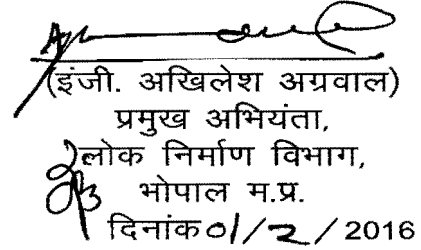 (इंजी. अखिलेश अग्रवाल)
प्रमुख अभियंता,
लोक निर्माण विभाग,
भोपाल म.प्र.
दिनांक 01/2/2016